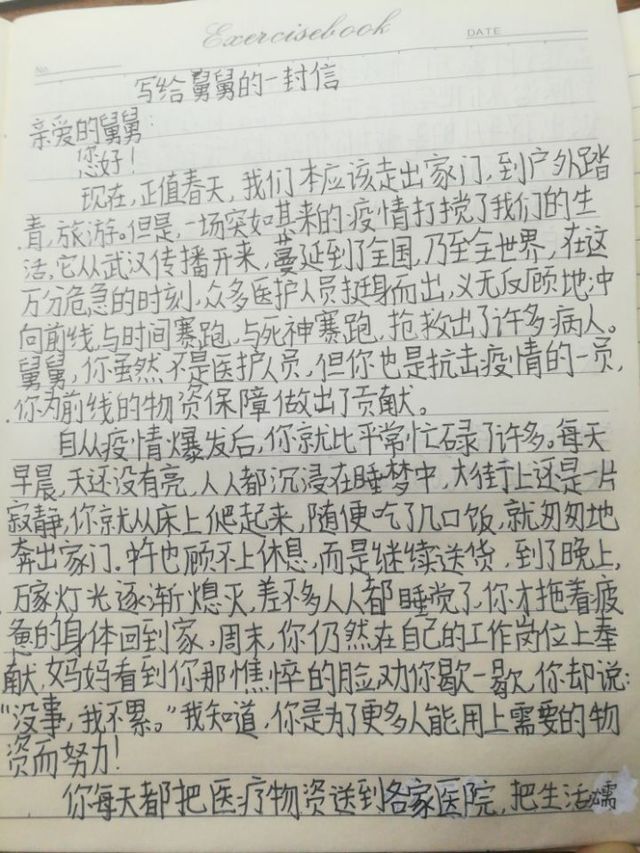 Exercisebook
DATE
No.
写给舅舅的一封信
亲爱的舅舅:
您好!
现在,正值春天,我们本应该走出家门,到户外踏
青,旅游。但是,一场突如其来的疫情打搅了我们的生
活,它从武汉传播开来,蔓延到了全国,乃至全世界,在这
万分危急的时刻,众多医护人员挺身而出,义无反顾地冲
向前线,与时间赛跑,与死神赛跑,抢救出了许多病人。
舅舅,你虽然不是医护人员,但你也是抗击疫情的一员,
你为前线的物资保障做出了贡献。
自从疫情爆发后,你就比平常忙碌了许多。每天
早晨,天还没有亮,人人都沉浸在睡梦中,大街上还是一片
寂静,你就从床上爬起来,随便吃了几口饭,就匆匆地
奔出家门.中午也顾不上休息,而是继续送货,到了晚上,
万家灯光逐渐熄灭,差不多人人都睡觉了,你才拖着疲
惫的身体回到家.周末,你仍然在自己的工作岗位上奉
献,妈妈看到你那憔悴的脸,劝你歇一歇,你却说:
“没事,我不累。”我知道,你是为了更多人能用上需要的物
资而努力!
你每天都把医疗物资送到各家医院,把生活